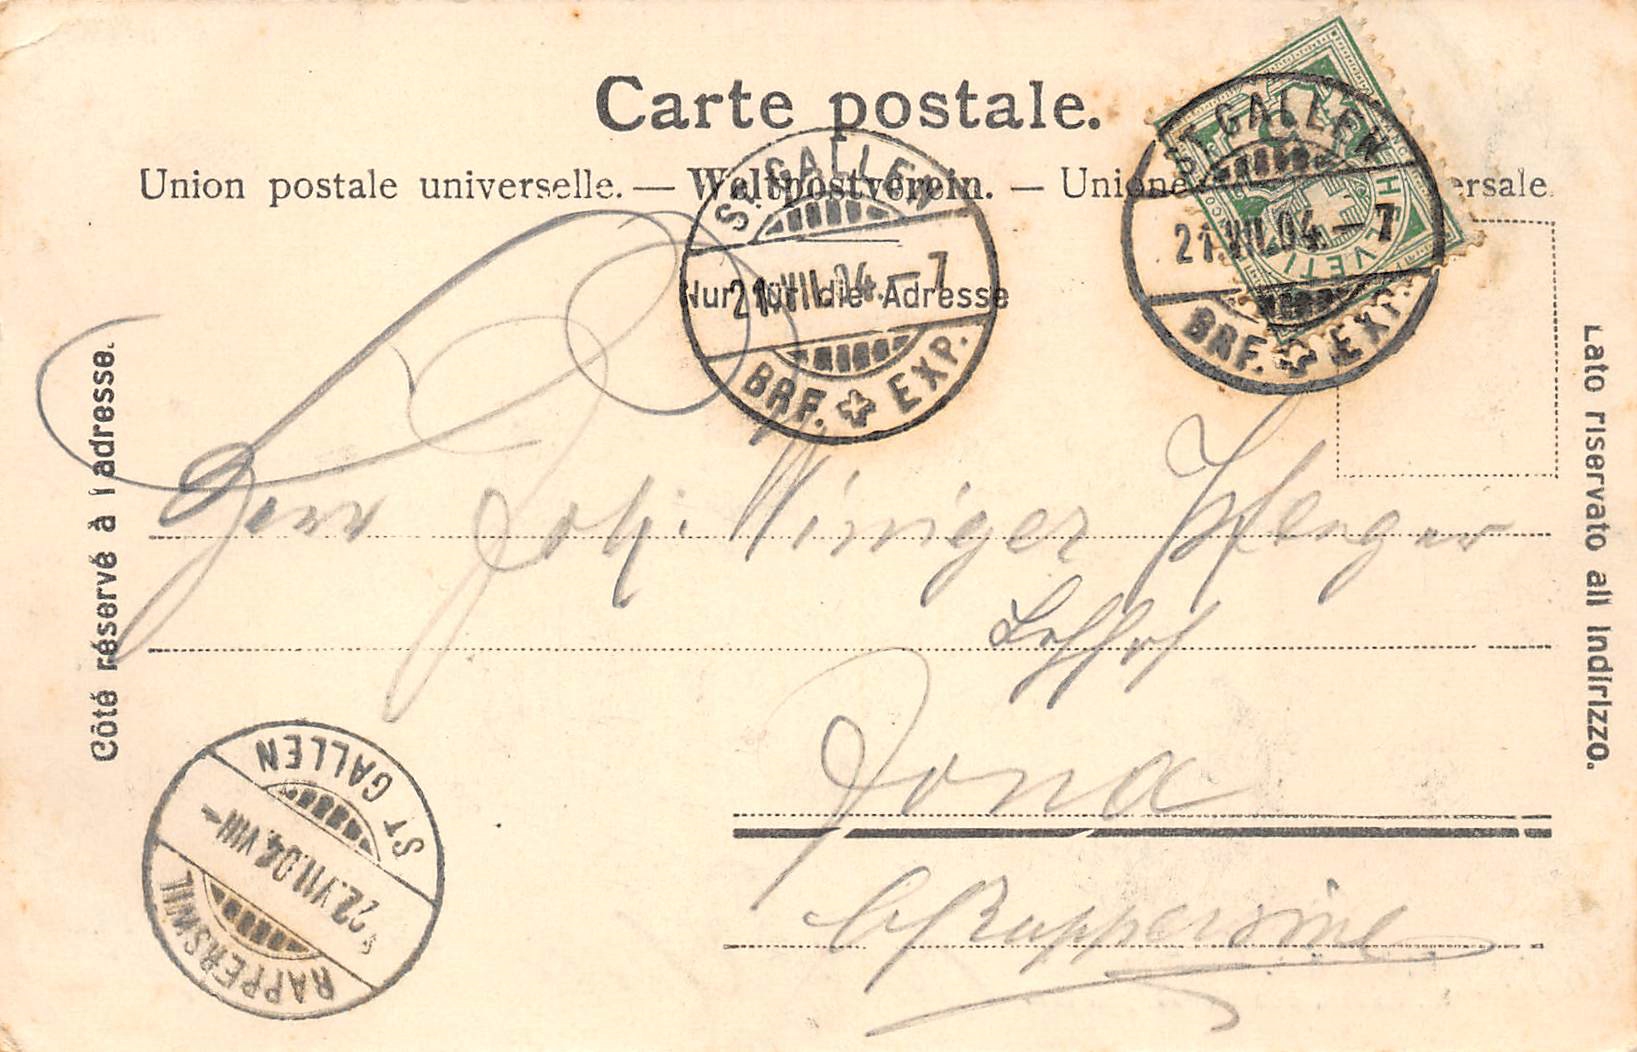 Carte postale.
Union postale universelle. — Weltpostverein. — Unione ersale
Nur für die Adresse
ST. GALLEN
21.VII.04.–7
BRF. EXP.
ST. GALLEN
21.VII.04.–7
BRF. EXP.
HELVETI
FRANCO
Côté réservé à l'adresse.
Lato riservato all' indirizzo.
Herrn Joh. Winiger
Jona
b/Rapperswil
RAPPERSWIL
22.VII.04.VIII–
ST GALLEN